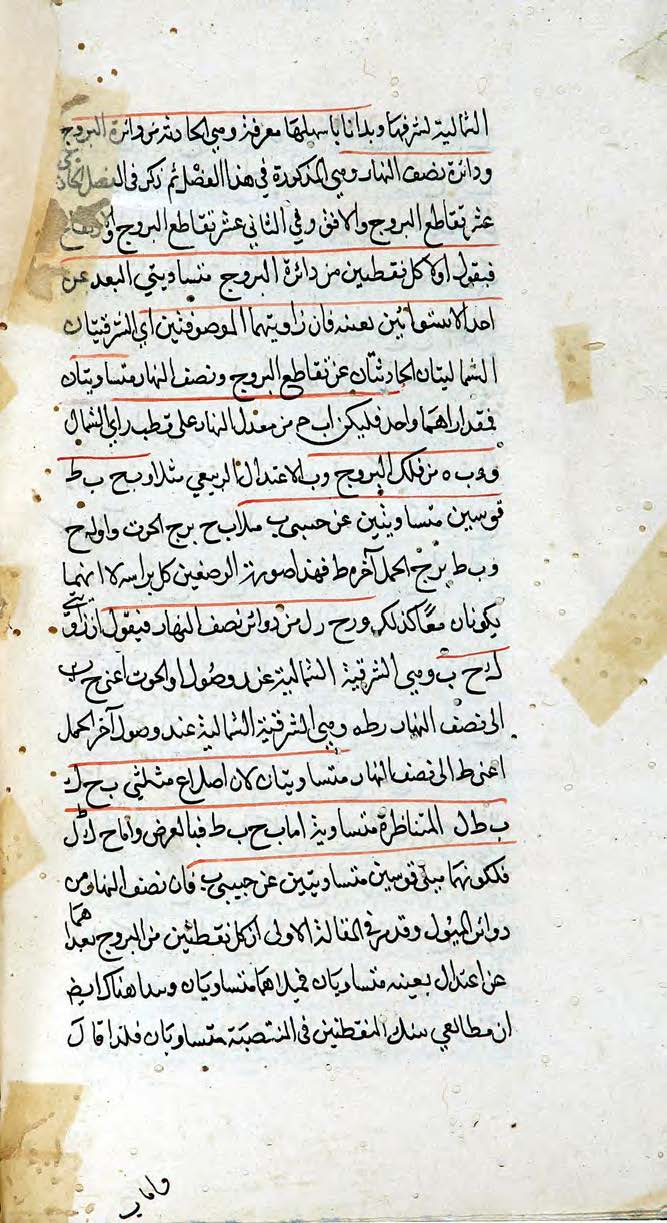 الشمالية لشرفها وبدانا باسهلها معرفة وهي الحادثة من دائرة البروج
ودائرة نصف النهار وهي المذكورة في هذا الفصل ثم ذكر في الفصل الحادي
عشر تقاطع البروج والافق وفي الثاني عشر تقاطع البروج والارتفاع
فيقول اولا كل نقطتين من دائرة البروج متساويتي البعد عن
احد الاستوائين بعينه فان زاويتهما الموصوفتين اي الشرقيتان
الشماليتان الحادثتان عن تقاطع البروج ونصف النهار متساويتان
فمقداراهما واحد فليكن اب ح من معدل النهار على قطب راي الشمال
وء ب ه من فلك البروج وب الاعتدال الربيعي مثلا وب ح ب ط
قوسين متساويتين عن جنبتي ب مثلا ب ح برج الحوت واوله ح
وب ط برج الحمل آخره ط فهذا صورة الوضعين كل براسه لا انهما
يكونان معا كذلك ور ح ر ل من دوائر نصف النهار فيقول ان زاويتي
ك ح ب وهي الشرقية الشمالية عند وصول اول الحوت اعني ح
الى نصف النهار ر ط ه وهي الشرقية الشمالية عند وصول آخر الحمل
اعني ط الى نصف النهار متساويتان لان اضلاع مثلثي ب ح ك
ب ط ل المتناظرة متساوية اما ب ح ب ط فبالفرض واما ح ك ط ل
فلكونهما ميلى قوسين متساويتين عن جنبتي ب فان نصف النهار من
دوائر الميول وقد مر في المقالة الاولى ان كل نقطتين من البروج بعداهما
عن اعتدال بعينه متساويان فميلاهما متساويان وبينا هناك ايضا
ان مطالعي تينك النقطتين في المنتصبة متساويان فلذا قال
واما ب